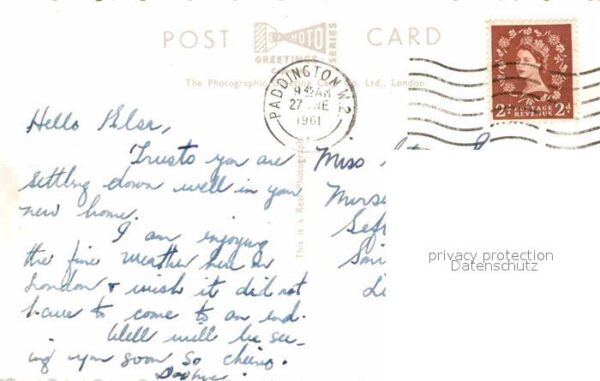 POST CARD
PHOTO
GREETINGS
SERIES
The Photographic Greeting Card Co., Ltd., London.
PADDINGTON W.2.
9 45 AM
27 JNE
1961
2d POSTAGE REVENUE 2d
Hello Else,
Trusts you are
settling down well in your
new home.
I am enjoying
the fine weather here in
London & wish it did not
have to come to an end.
Well will be see-
ing you soon so cheerio.
Miss
This is a Real Photograph
privacy protection
Datenschutz